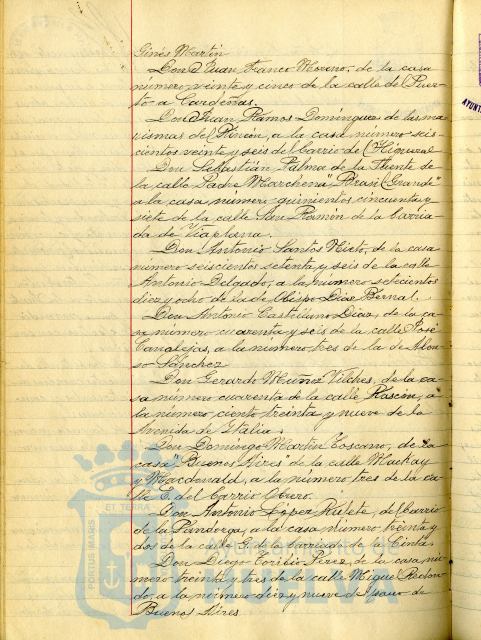 Ginés Martín
Don Juan Franco Moreno, de la casa
número veinte y cinco de la calle del Puer-
to a Cardeñas.
Don Juan Ramos Domínguez de las ma-
rismas del Rincón, a la casa número seis-
cientos veinte y seis del barrio de Higueral
Don Sebastián Palma de la Fuente de
la calle Padre Marchena "Brasil Grande"
a la casa número quinientos cincuenta y
siete de la calle San Ramón de la barria-
da de Viaplana.
Don Antonio Santos Nieto, de la casa
número seiscientos setenta y seis de la calle
Antonio Delgado, a la número setecientos
diez y ocho de la de Obispo Díaz Bernal.
Don Antonio Castellano Díaz, de la ca-
sa número cuarenta y seis de la calle José
Canalejas, a la número tres de la de Alon-
so Sánchez
Don Gerardo Muñoz Vilches, de la ca-
sa número cuarenta de la calle Rascón, a
la número ciento treinta y nueve de la
Avenida de Italia.
Don Domingo Martín Toscano, de la
casa "Buenos Aires" de la calle Mackay
y Macdonald, a la número tres de la ca-
lle del barrio Obrero.
Don Antonio López Rulete, del barrio
de la Pandorga, a la casa número treinta y
dos de la casa G. de la barriada de la Cinta.
Don Diego Pérez, de la casa nú-
mero treinta y tres de la calle Miguel Redon-
do, a la número diez y nueve del paseo de
Buenos Aires
Ayuntamiento de
HUELVA
PORTUS MARIS
ET TERRA
AYUNT